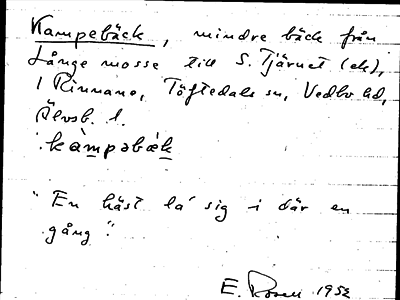 Kampebäck, mindre bäck från
Långe mosse till S. Tjärnet (ek),
I Rinnane, Töftedals sn, Vedbo hd,
Älvsb. l.
kàmpəbæ̀k
"En häst la' sig i där en
gång".
E. Rosell 1952